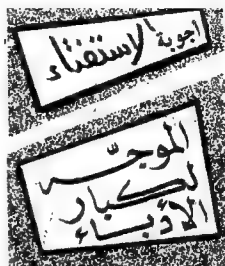 أجوبة الاستفتاء
الموجّه
لكبار
الأدباء